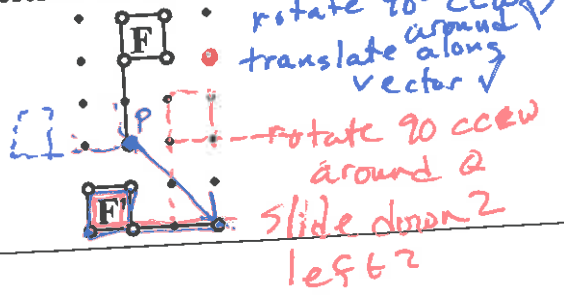 F
rotate 90° ccw
around
translate along
vector
P
rotate 90 ccw
around Q
F'
slide down 2
left 2